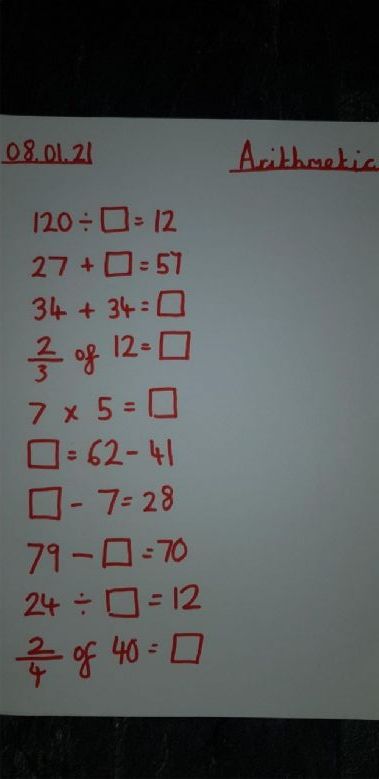 08.01.21 Arithmetic
120 ÷ □ = 12
27 + □ = 57
34 + 34 = □
2/3 of 12 = □
7 x 5 = □
□ = 62 - 41
□ - 7 = 28
79 - □ = 70
24 ÷ □ = 12
2/4 of 40 = □